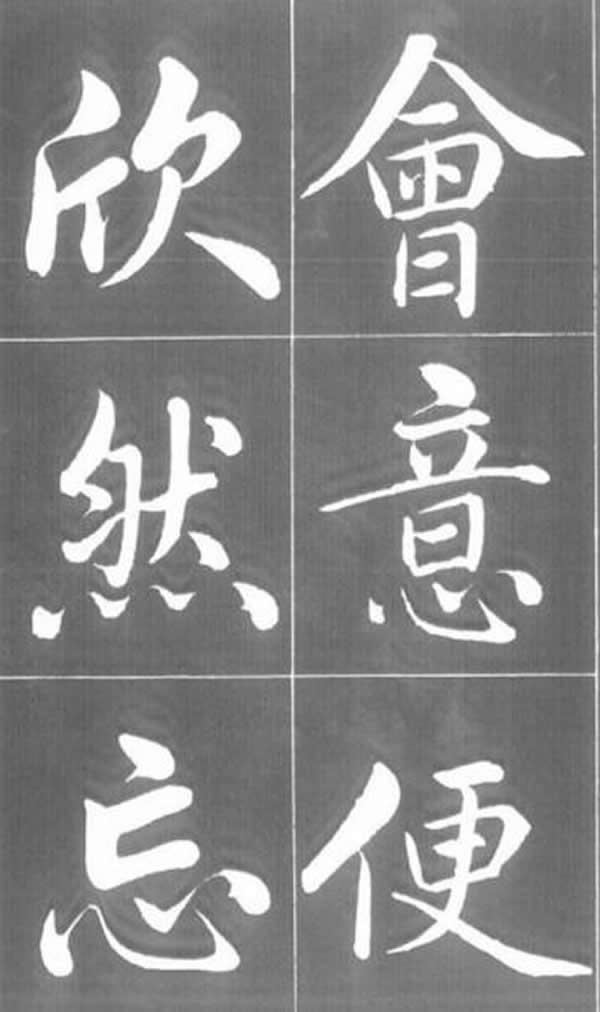 會意便
欣然忘